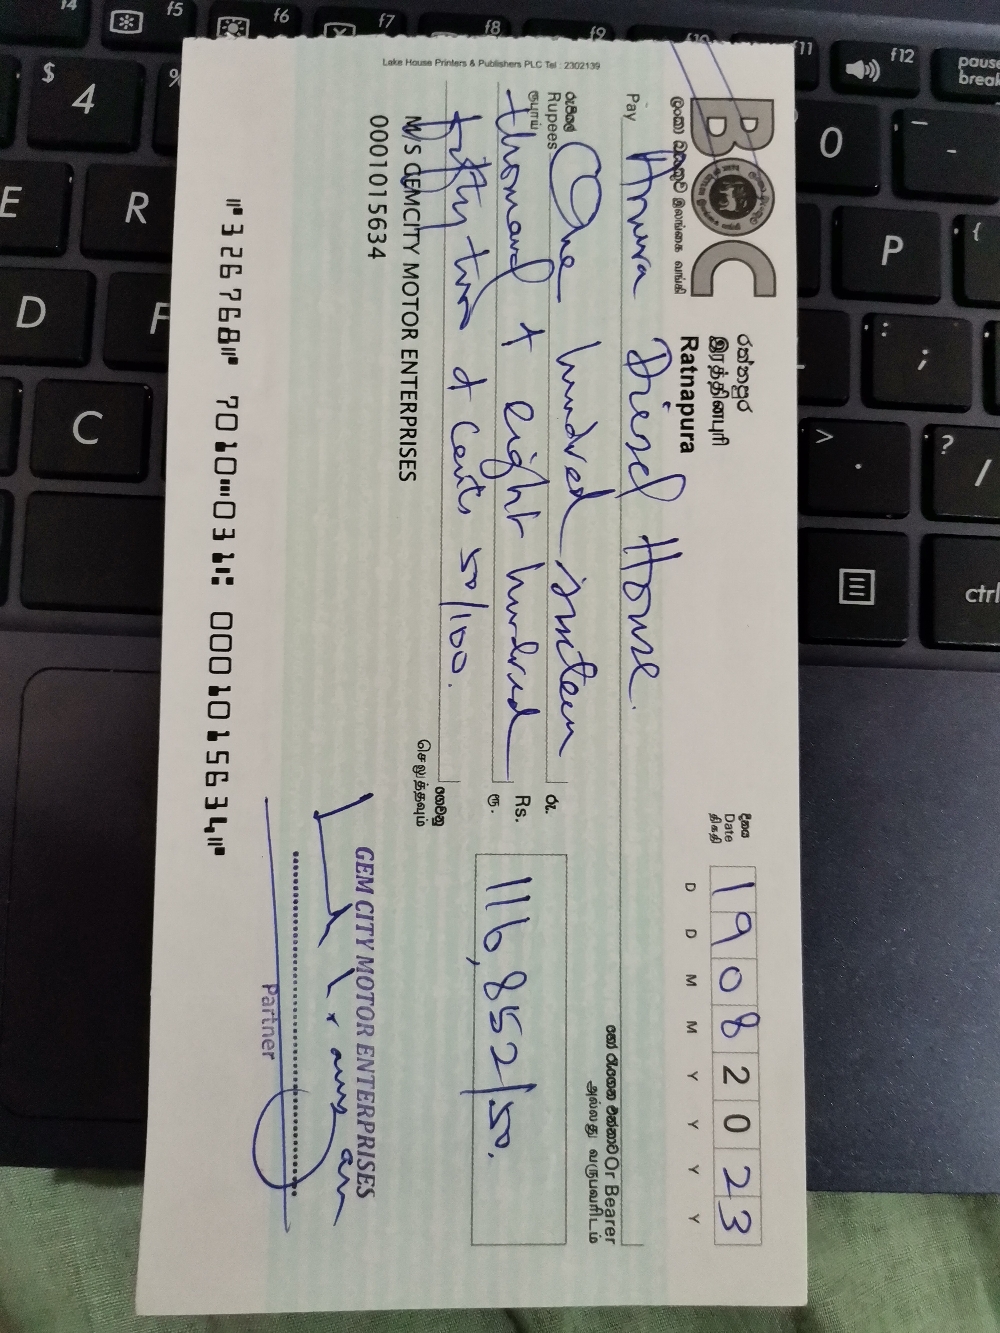 Lake House Printers & Publishers PLC Tel : 2302139
BOC
ලංකා බැංකුව இலங்கை வங்கி
රත්නපුර
இரத்தினபுரி
Ratnapura
දිනය
Date
திகதி
19082023
D D M M Y Y Y Y
Pay Anura Diesel House
හෝ රැගෙන එන්නාට Or Bearer
அல்லது வருபவரிடம்
රුපියල්
Rupees
ரூபாய்
One hundred sixteen
thousand + eight hundred
fifty two & cents 50/100.
රු.
Rs.
ரூ.
116,852/50.
ගෙවනු
செலுத்தவும்
M/S GEMCITY MOTOR ENTERPRISES
0001015634
GEM CITY MOTOR ENTERPRISES
Partner
⑈326768⑈ 7010⑉031⑆ 0001015634⑈